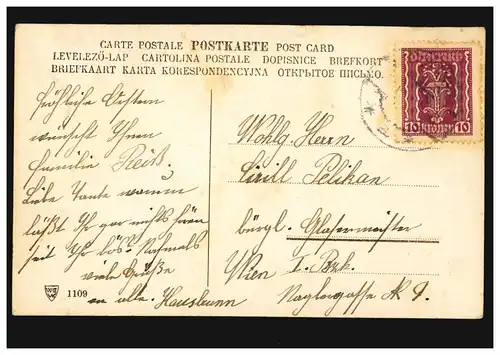 CARTE POSTALE POSTKARTE POST CARD
LEVELEZŐ-LAP CARTOLINA POSTALE DOPISNICE BREFKORT
BRIEFKAART KARTA KORESPONDENCYJNA ОТКРЫТОЕ ПИСЬМО.
10 KRONEN 10
fröhliche Ostern
wünscht Ihnen
Familie Reiß.
Liebe Tante warum
läßt Ihr gar nichts hören
seit Ihr bös. Nochmals
viele Grüße
an alle.
Wohlg. Herrn
Cirill Pelikan
bürgl. Glasermeister
Wien I. Bzk.
Naglergasse № 9.
1109